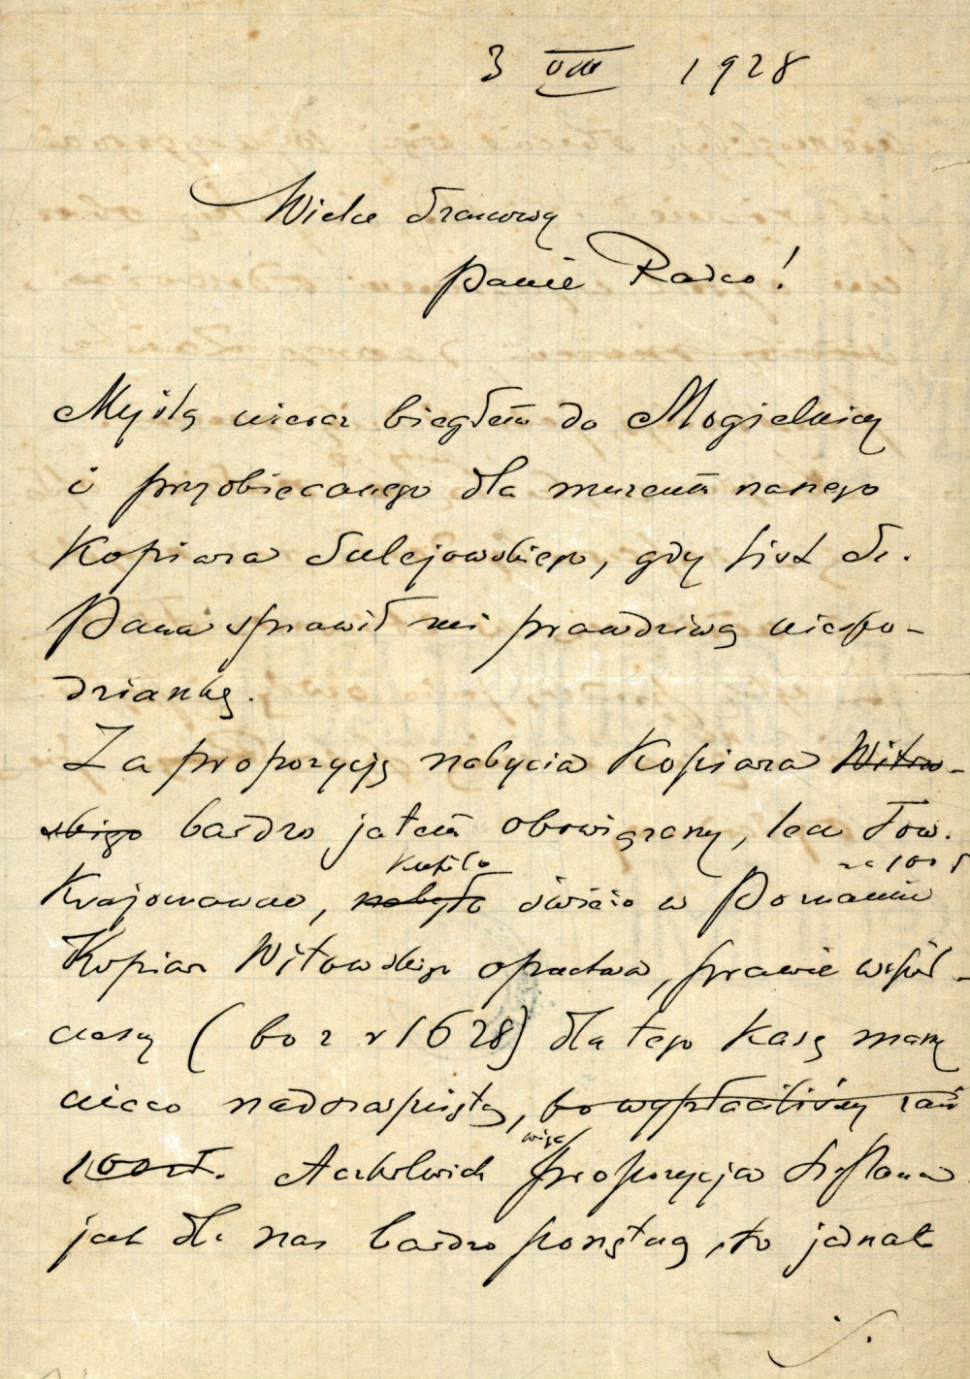 3 VIII 1928
Wielce Szanowny
Panie Radco!
Myślą nieraz biegłem do Mogielnicy
i przyobiecanego dla muzeum naszego
Kopiarza Sulejowskiego, gdy list Sz.
Pana sprawił mi prawdziwą niespo-
dziankę.
Za propozycję nabycia Kopiarza Witow-
skiego bardzo jestem obowiązany, lecz Tow.
kupiło za 100 zł
Krajoznawcze, nabyło świeżo w Poznaniu
Kopiarz Witowskiego opactwa, prawie współ-
czesny (bo z r 1628) dla tego kasę mamy
nieco nadszarpniętą, bo wypłaciliśmy zań
100 zł. Aczkolwiek więc propozycja Sz Pana
jest dla nas bardzo ponętną, to jednak